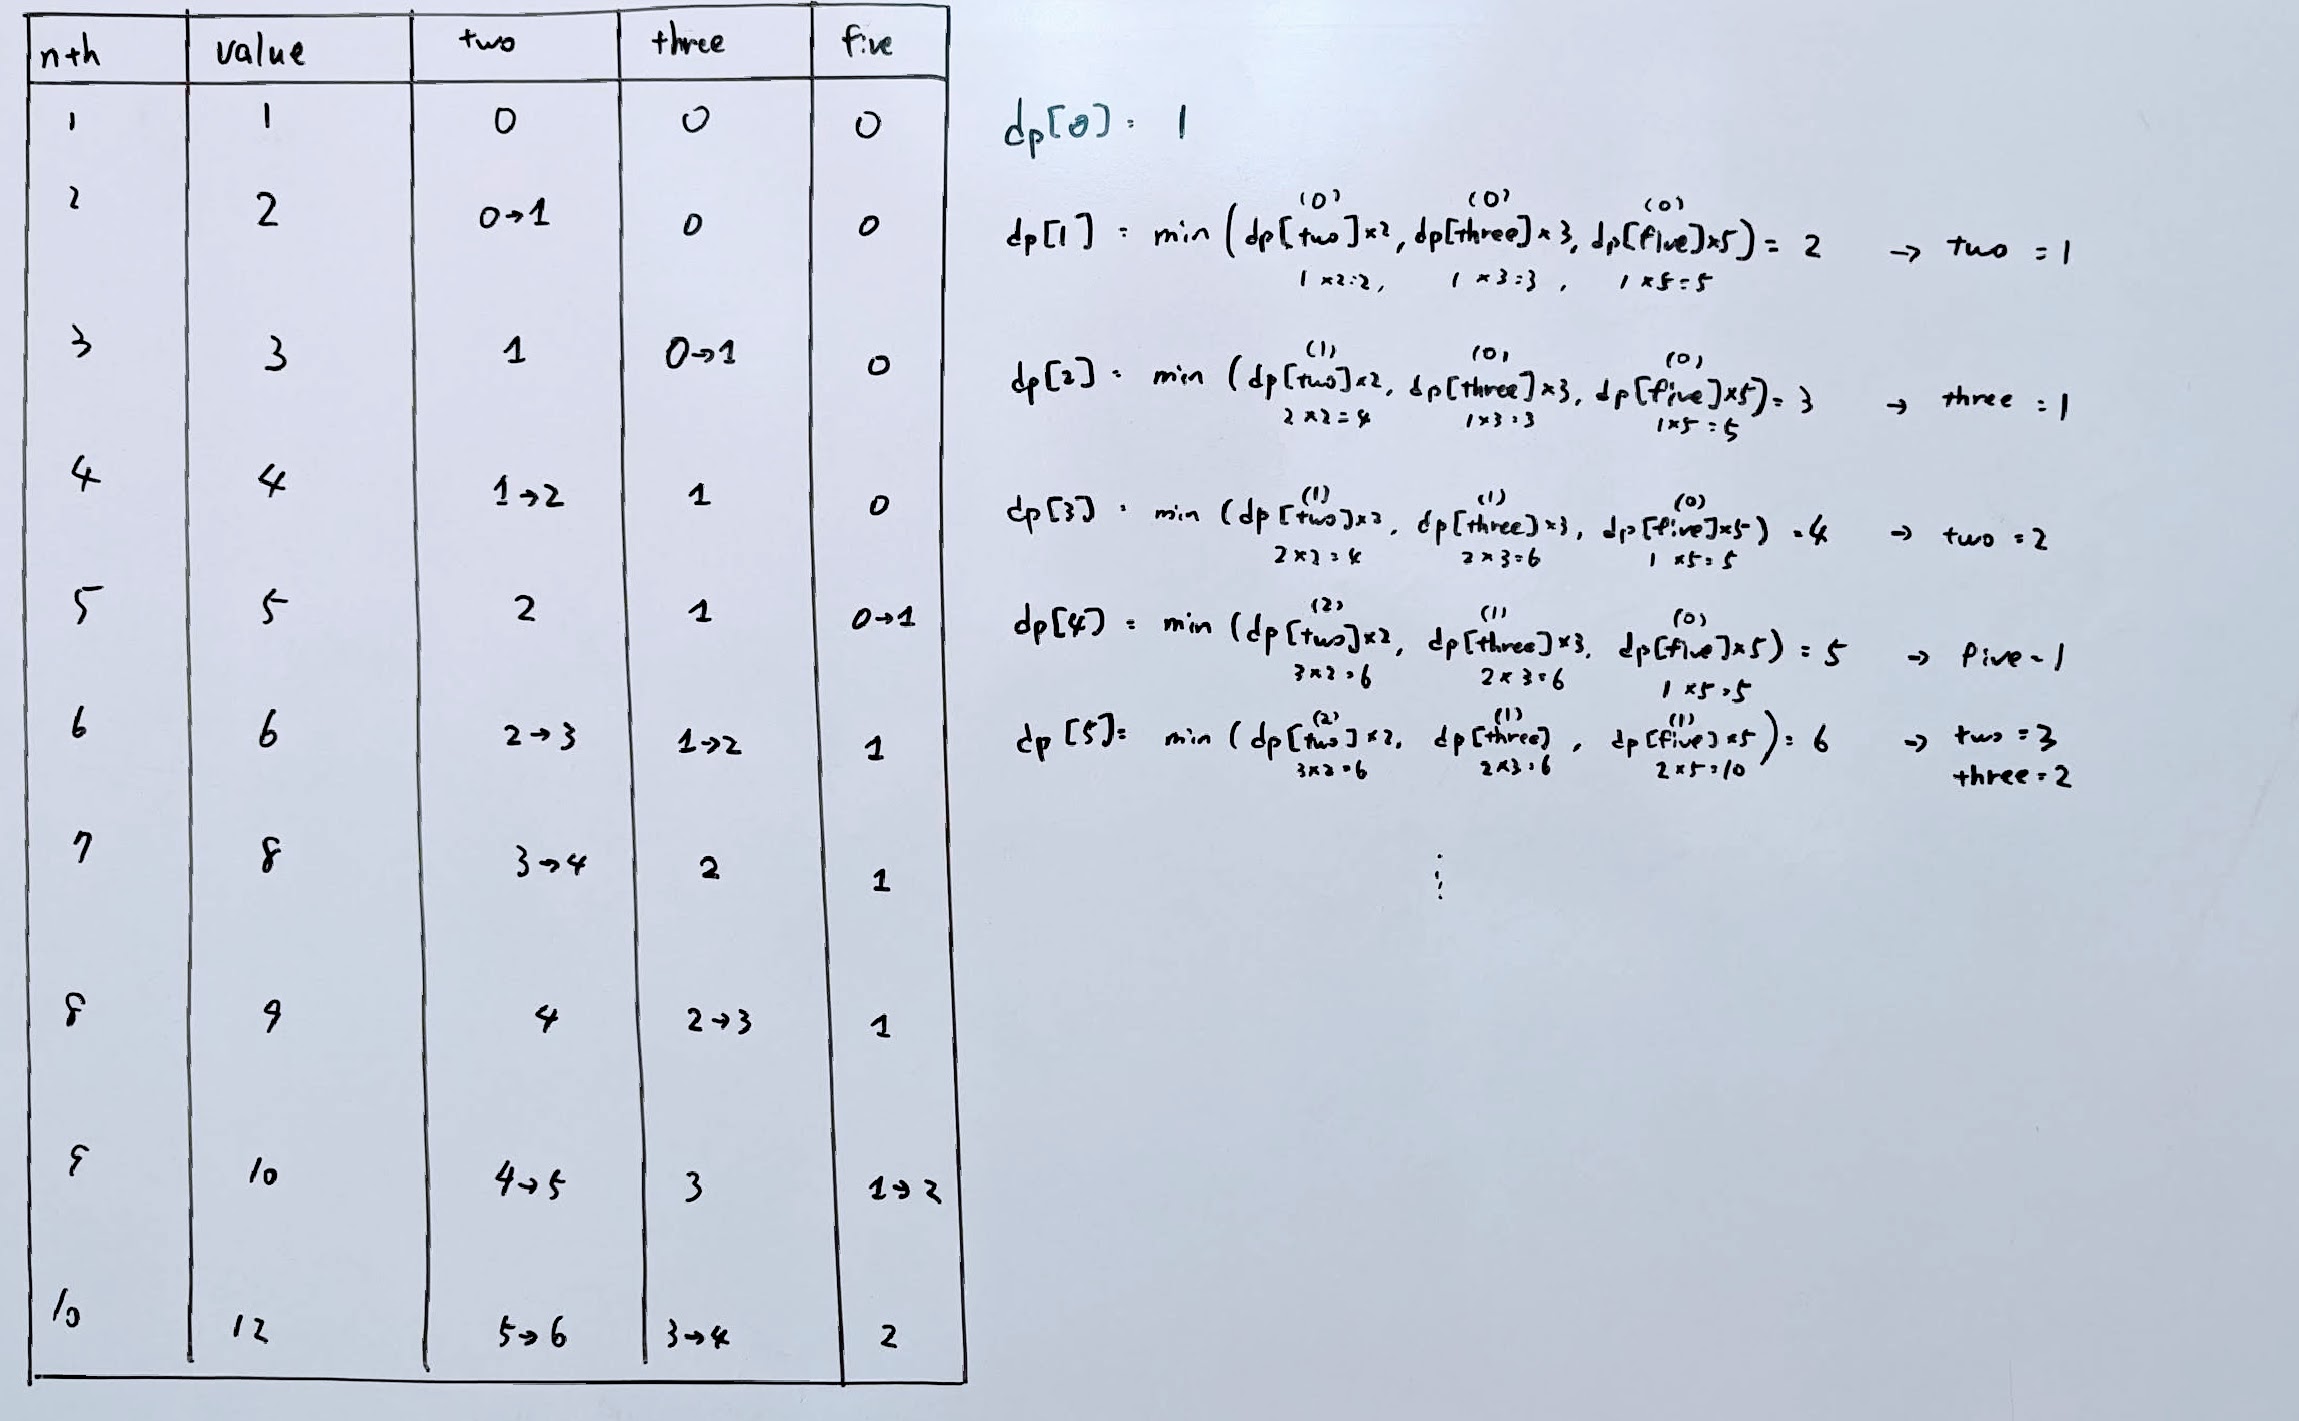 nth value two three five
1 1 0 0 0
2 2 0→1 0 0
3 3 1 0→1 0
4 4 1→2 1 0
5 5 2 1 0→1
6 6 2→3 1→2 1
7 8 3→4 2 1
8 9 4 2→3 1
9 10 4→5 3 1→2
10 12 5→6 3→4 2
dp[0] = 1
(0) (0) (0)
dp[1] = min (dp[two]×2, dp[three]×3, dp[five]×5) = 2 → two = 1
1×2=2, 1×3=3, 1×5=5
(1) (0) (0)
dp[2] = min (dp[two]×2, dp[three]×3, dp[five]×5) = 3 → three = 1
2×2=4 1×3=3 1×5=5
(1) (1) (0)
dp[3] = min (dp[two]×2, dp[three]×3, dp[five]×5) = 4 → two = 2
2×2=4 2×3=6 1×5=5
(2) (1) (0)
dp[4] = min (dp[two]×2, dp[three]×3, dp[five]×5) = 5 → five = 1
3×2=6 2×3=6 1×5=5
(2) (1) (1)
dp[5] = min (dp[two]×2, dp[three], dp[five]×5) = 6 → two = 3
3×2=6 2×3=6 2×5=10 three = 2
⋮